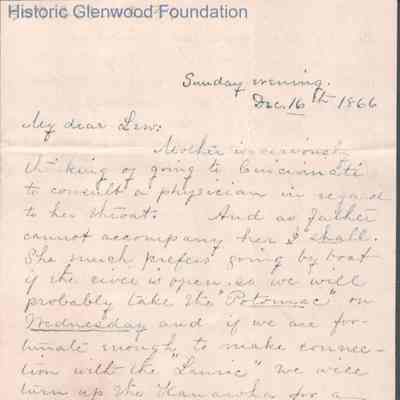 Historic Glenwood Foundation
Sunday evening.
Dec. 16th 1866
My dear Lew:
Mother is seriously
thinking of going to Cincinnati
to consult a physician in regard
to her throat. And as father
cannot accompany her I shall.
She much prefers going by boat
if the river is open, so we will
probably take the "Potomac" on
Wednesday and if we are for-
tunate enough to make connec-
tion with the "Annie" we will
turn up the Kanawha for a